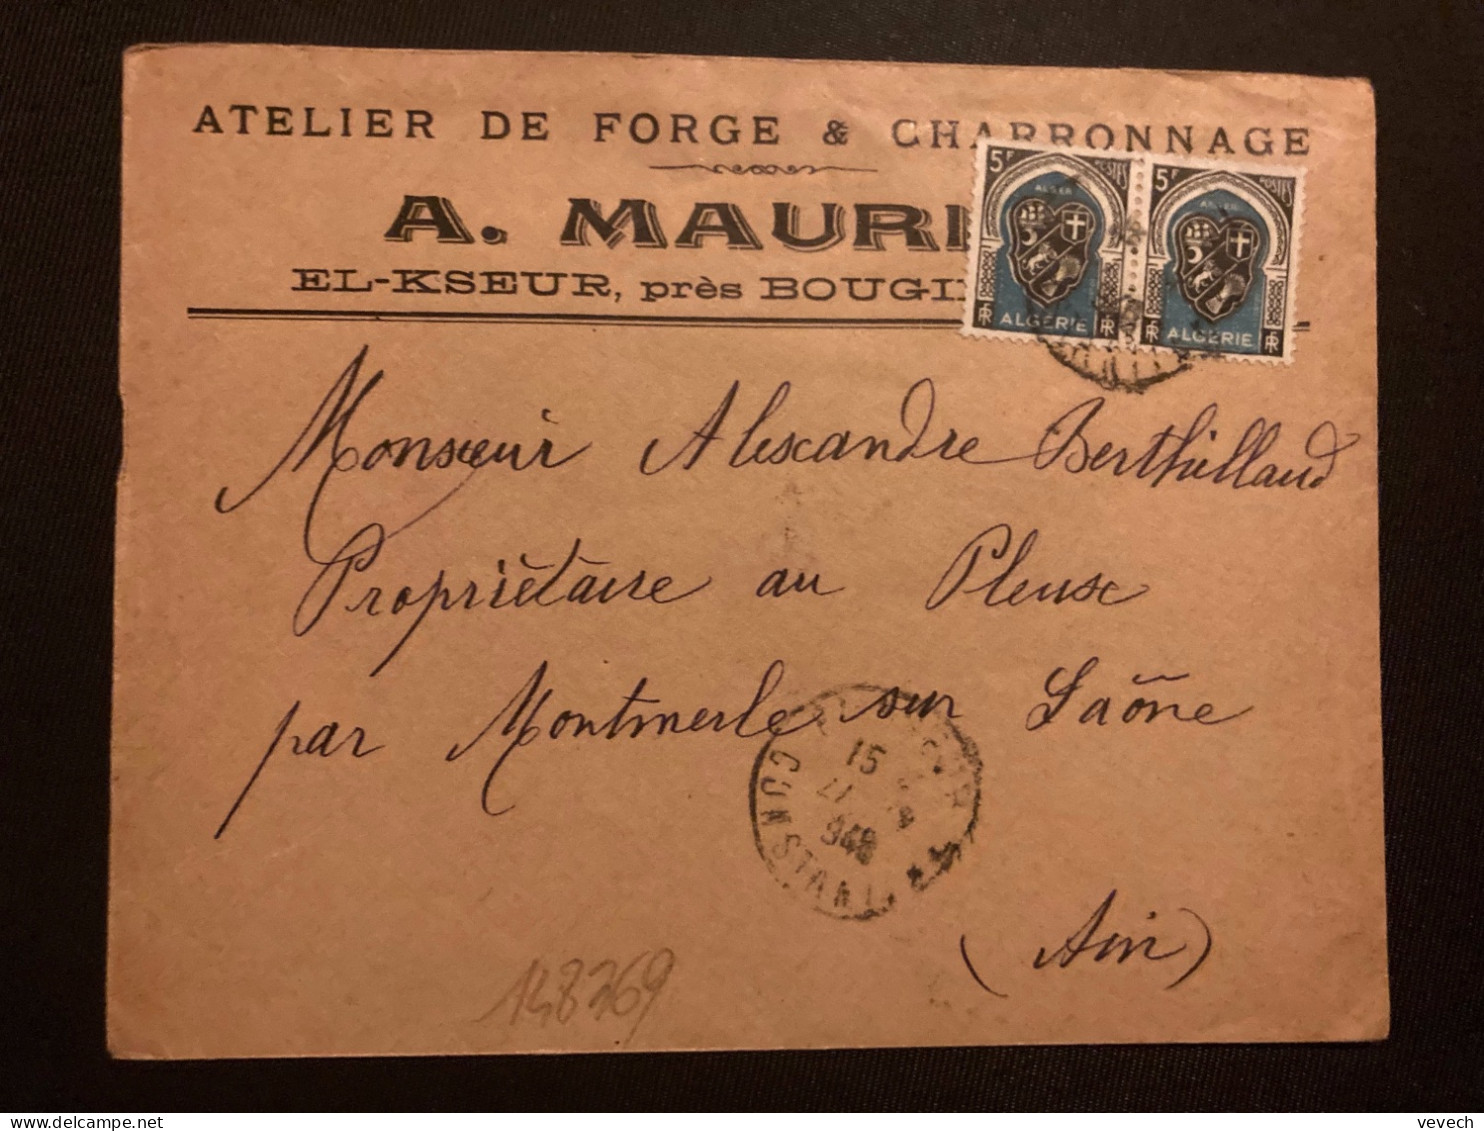 ATELIER DE FORGE & CHARRONNAGE
A. MAURI
EL-KSEUR, près BOUGI
5F POSTES
ALGER
RF ALGÉRIE RF
5F POSTES
ALGER
RF ALGÉRIE RF
Monsieur Alexandre Berthillaud
Propriétaire au Pleux
par Montmerle sur Saône
15
948
CONSTANT
(Ain)
148269
vevech